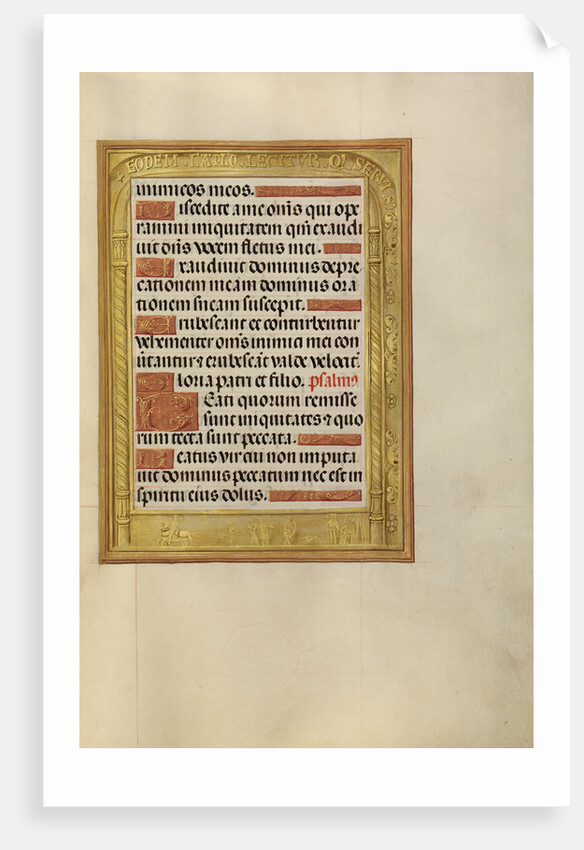 EODEM · CAPLO · LEGITVR · QI SEQVI
inimicos meos.
Discedite a me om̄s qui ope
ramini iniquitatem qm̄ exaudi
uit dn̄s vocem fletus mei.
Exaudiuit dominus depre
cationem meam dominus ora
tionem meam suscepit.
Erubescant et conturbentur
vehementer om̄s inimici mei con
uertantur ⁊ erubescāt valde velociť
Gloria patri et filio. psalmꝰ
BEati quorum remisse
sunt iniquitates ⁊ quo
rum tecta sunt peccata.
Beatus vir cui non imputa
uit dominus peccatum nec est in
spiritu eius dolus.